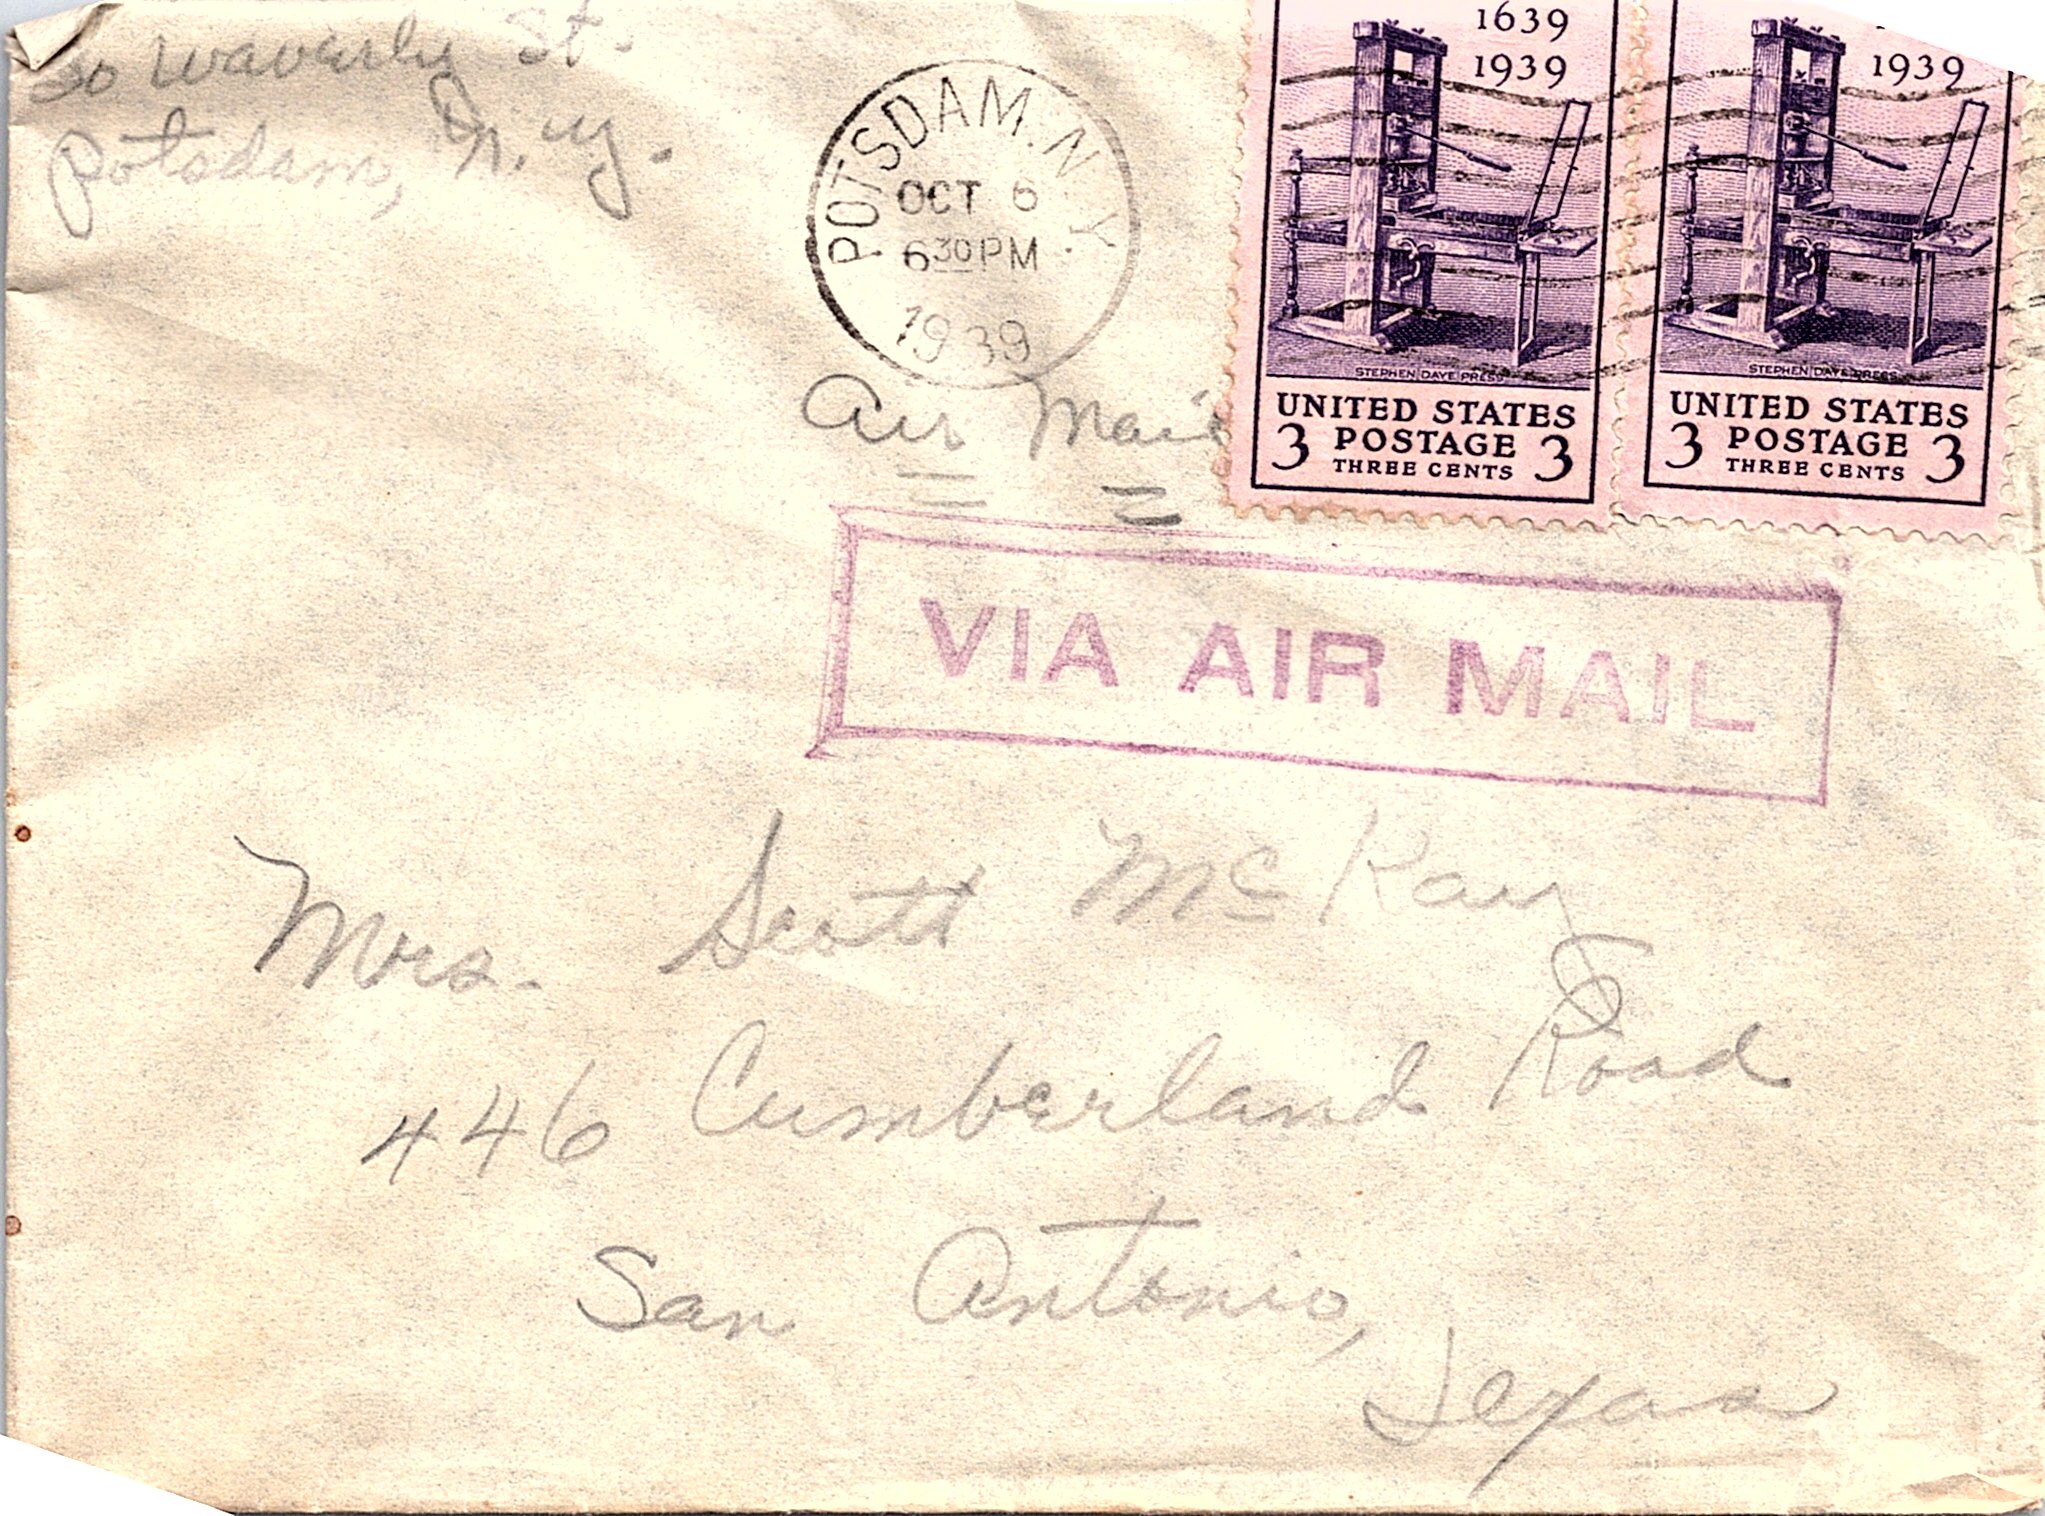 30 Waverly St.
Potsdam, N. Y.
POTSDAM. N.Y.
OCT 6
6 30 PM
1939
1639
1939
STEPHEN DAYE PRESS
UNITED STATES
3 POSTAGE 3
THREE CENTS
1939
STEPHEN DAYE PRESS
UNITED STATES
3 POSTAGE 3
THREE CENTS
Air Mail
VIA AIR MAIL
Mrs. Scott McKay
446 Cumberland Road
San Antonio,
Texas